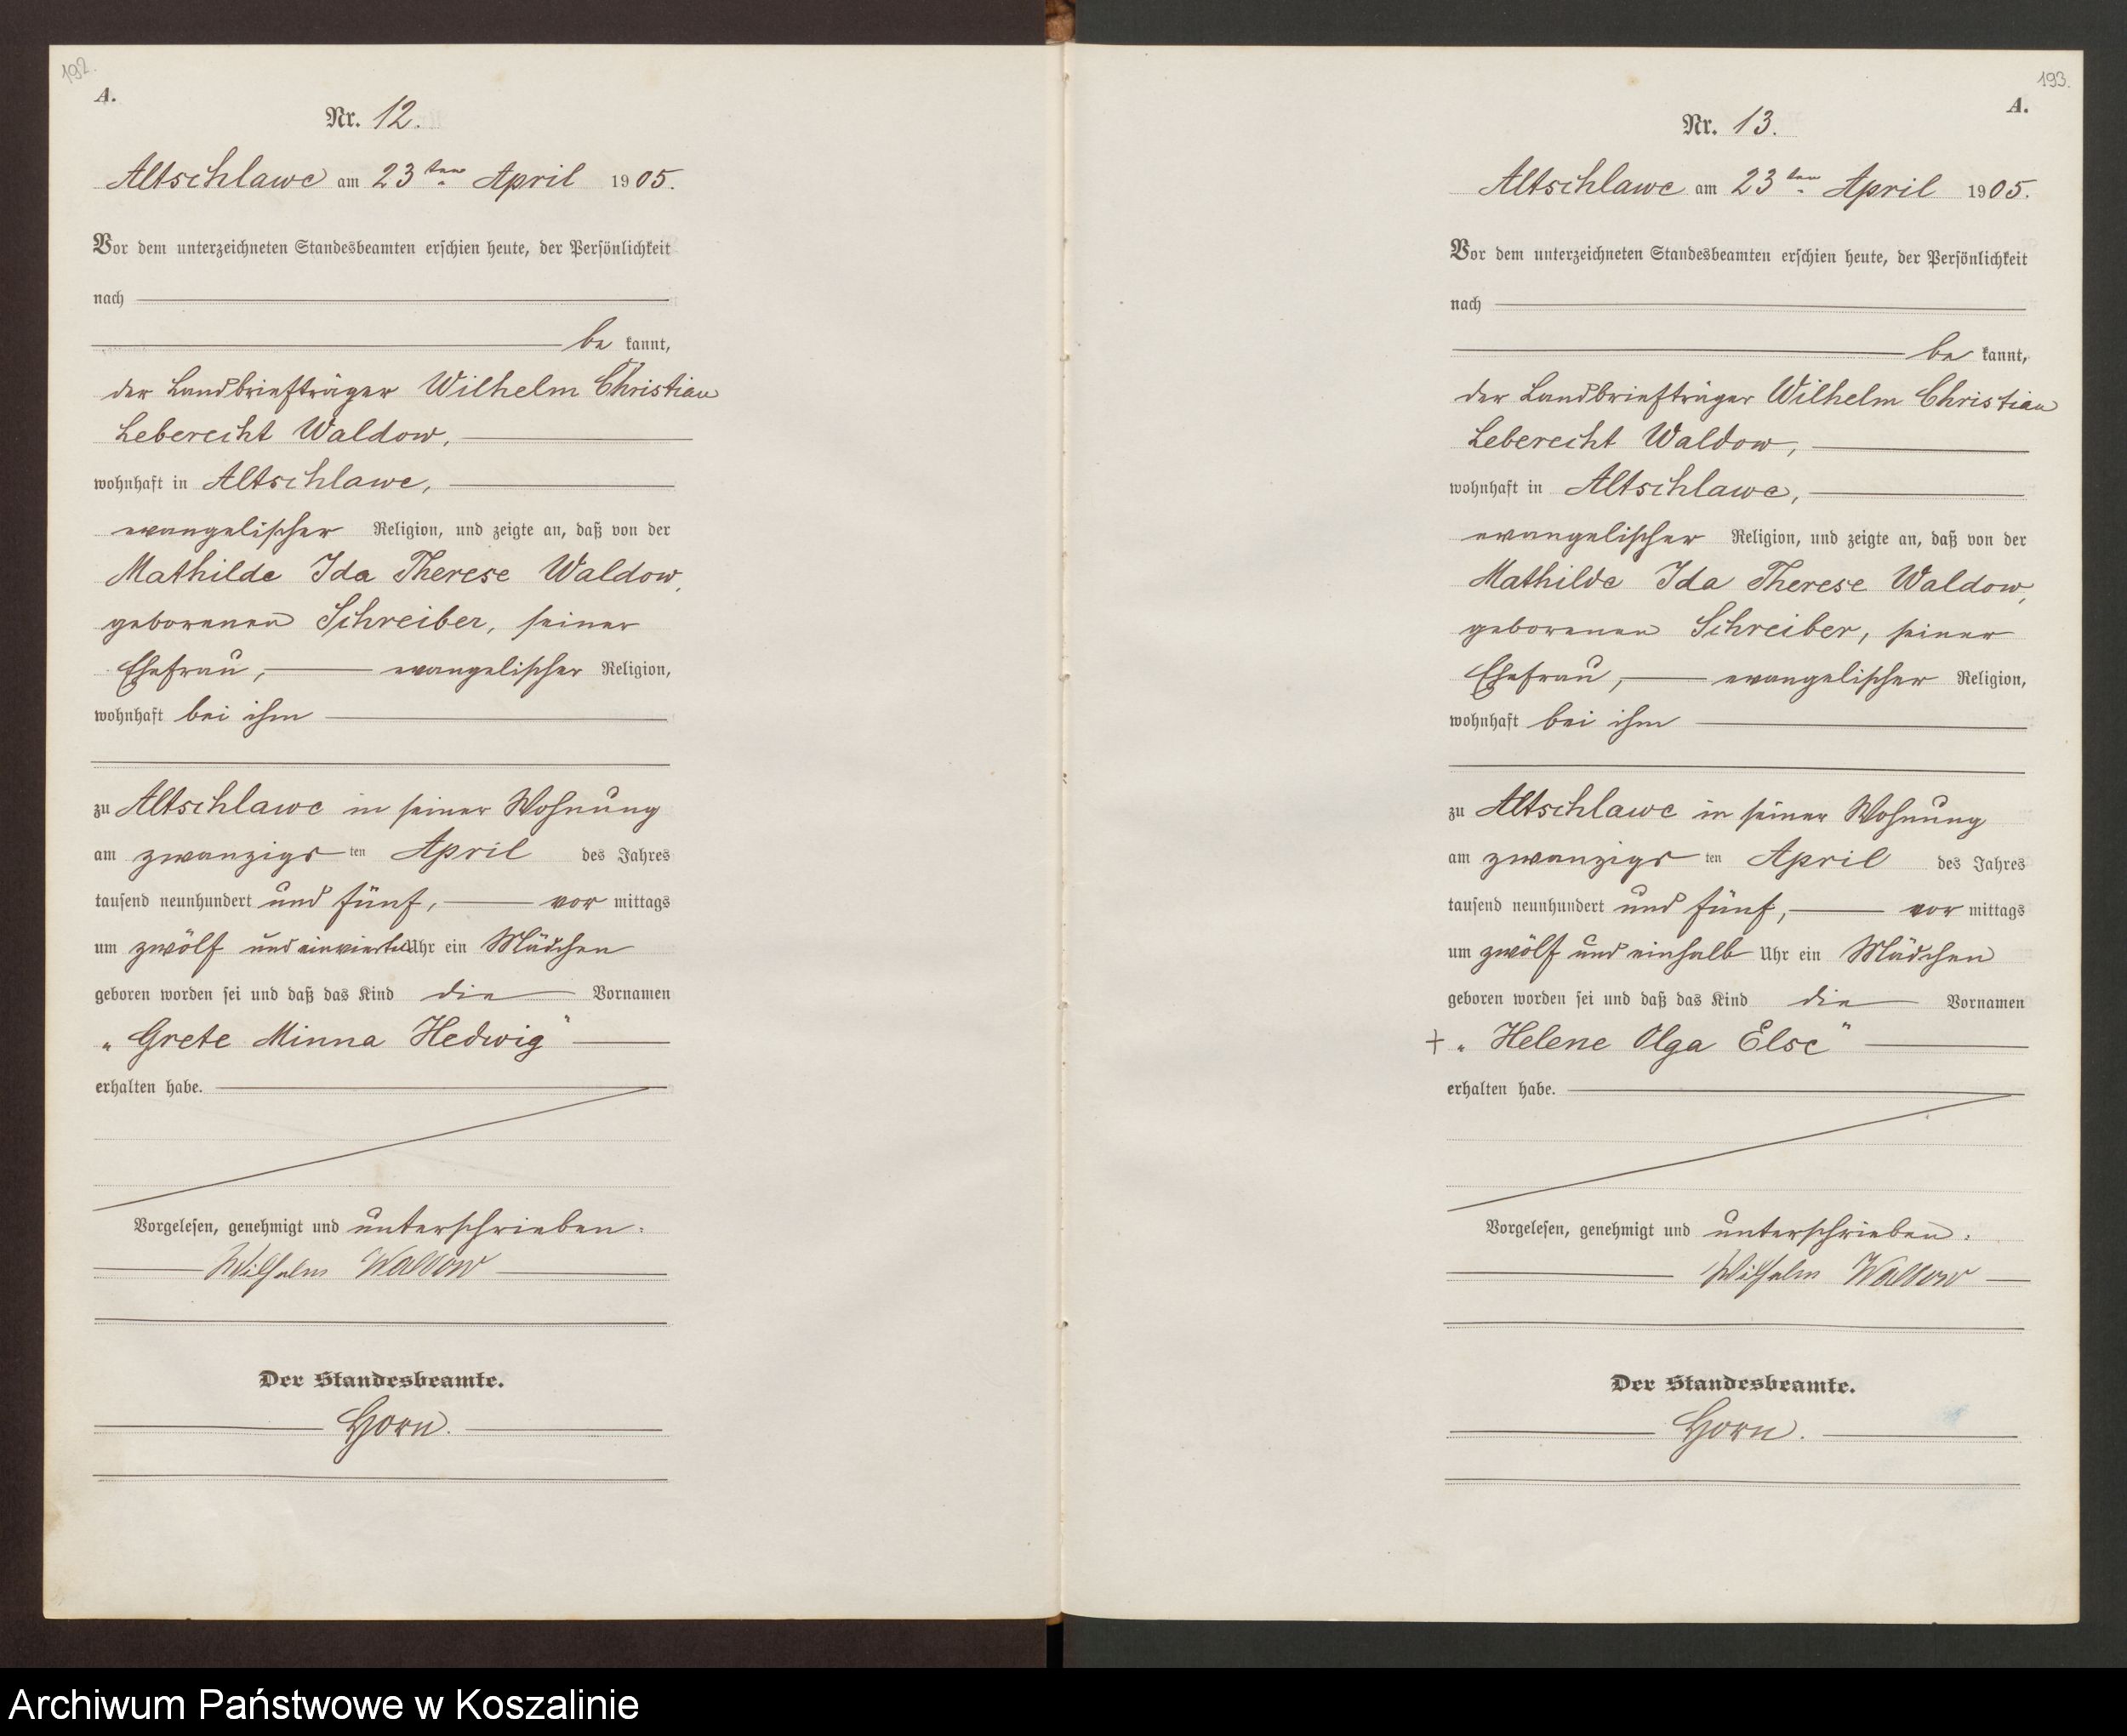 192.
A.
Nr. 12.
Altschlawe am 23ten April 1905.
Vor dem unterzeichneten Standesbeamten erschien heute, der Persönlichkeit
nach
be kannt,
der Landbriefträger Wilhelm Christian
Leberecht Waldow,
wohnhaft in Altschlawe,
evangelischer Religion, und zeigte an, daß von der
Mathilde Ida Therese Waldow,
geborenen Schreiber, seiner
Ehefrau, evangelischer Religion,
wohnhaft bei ihm
zu Altschlawe in seiner Wohnung
am zwanzigsten April des Jahres
tausend neunhundert und fünf, vor mittags
um zwölf und einviertel Uhr ein Mädchen
geboren worden sei und daß das Kind die Vornamen
„Grete Minna Hedwig“
erhalten habe.
Vorgelesen, genehmigt und unterschrieben.
Wilhelm Waldow
Der Standesbeamte.
Horn.
193.
A.
Nr. 13.
Altschlawe am 23ten April 1905.
Vor dem unterzeichneten Standesbeamten erschien heute, der Persönlichkeit
nach
be kannt,
der Landbriefträger Wilhelm Christian
Leberecht Waldow,
wohnhaft in Altschlawe,
evangelischer Religion, und zeigte an, daß von der
Mathilde Ida Therese Waldow,
geborenen Schreiber, seiner
Ehefrau, evangelischer Religion,
wohnhaft bei ihm
zu Altschlawe in seiner Wohnung
am zwanzigsten April des Jahres
tausend neunhundert und fünf, vor mittags
um zwölf und einhalb Uhr ein Mädchen
geboren worden sei und daß das Kind die Vornamen
+ „Helene Olga Else“
erhalten habe.
Vorgelesen, genehmigt und unterschrieben.
Wilhelm Waldow
Der Standesbeamte.
Horn.
Archiwum Państwowe w Koszalinie